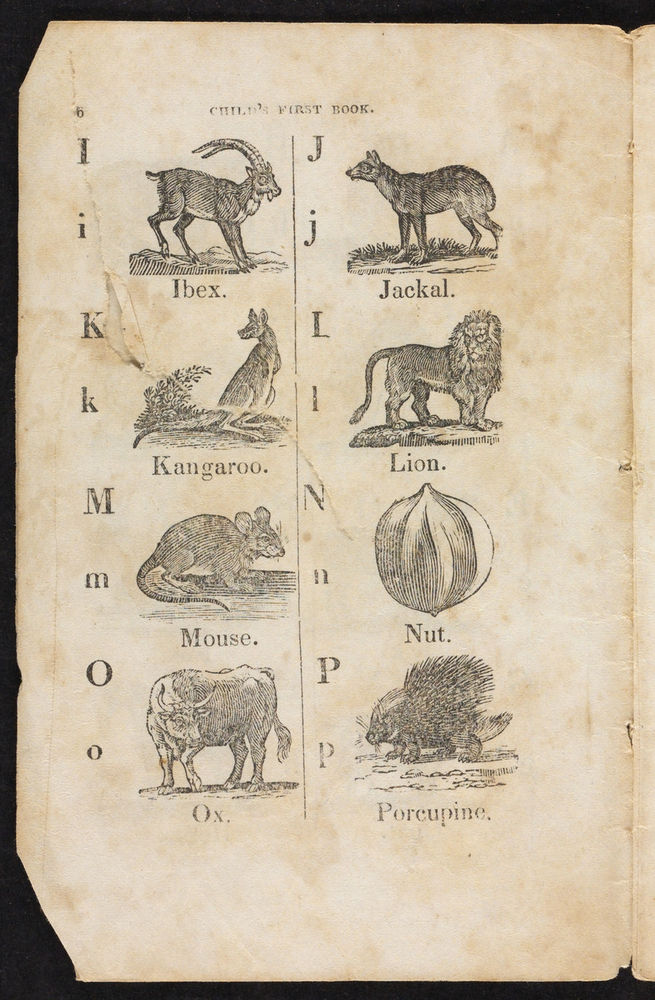 6 CHILD'S FIRST BOOK.
I J
i j
Ibex. Jackal.
K L
k l
Kangaroo. Lion.
M N
m n
Mouse. Nut.
O P
o p
Ox. Porcupine.